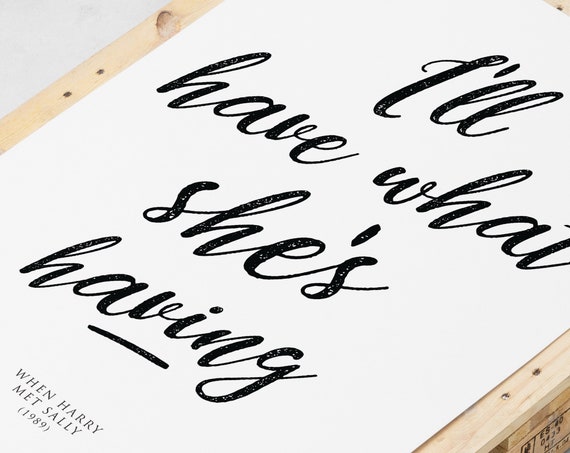 I'll
have what
she's
having
WHEN HARRY
MET SALLY
(1989)